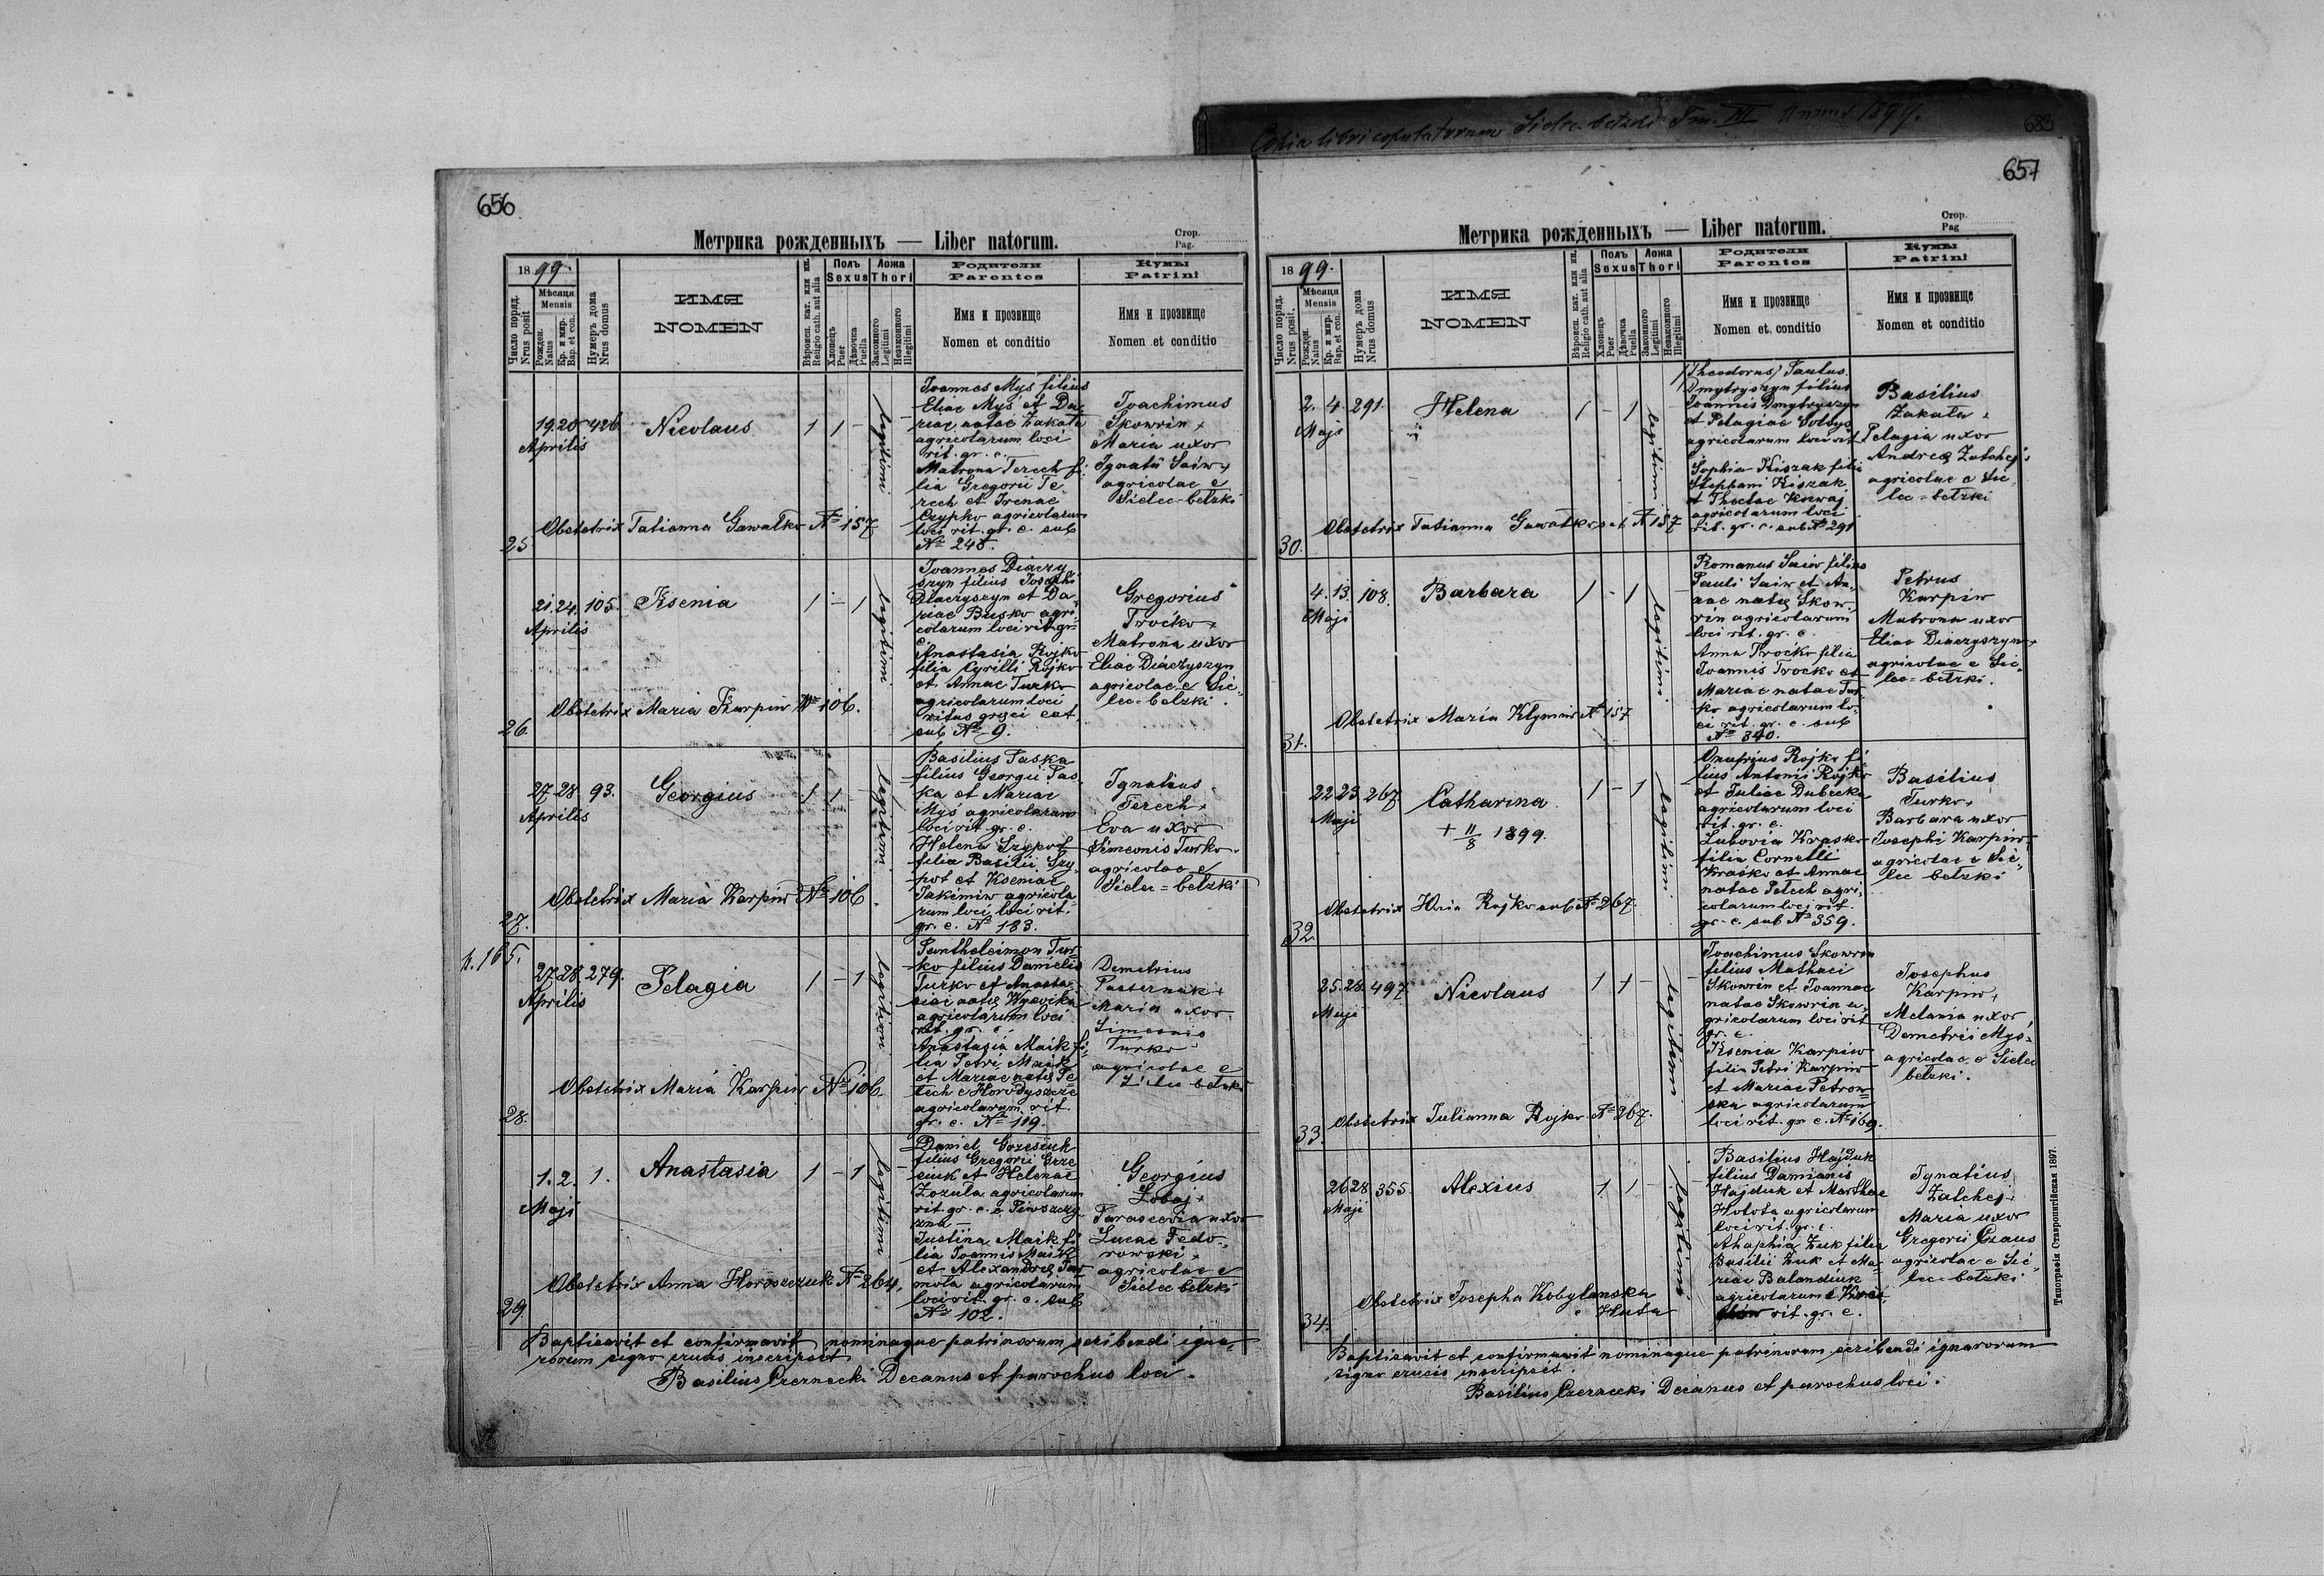 Copia libri copulatorum Sielec-betzki Tm. III Annus 1899.
683
656
Метрика рожденныхъ — Liber natorum.
Стор.
Pag.
1899.
Число поряд.
Nrus posit
Мѣсяця
Mensis
Рожден.
Natus
Кр. и мир.
Bap. et con.
Нумеръ дома
Nrus domus
ИМЯ
NOMEN
Вѣроисп. кат. или ин.
Religio cath. aut alia
Полъ
Sexus
Хлопець
Puer
Дѣвочка
Puella
Ложа
Thori
Законного
Legitimi
Незаконного
Illegitimi
Родители
Parentes
Имя и прозвище
Nomen et conditio
Кумы
Patrini
Имя и прозвище
Nomen et conditio
25.
19. 20. 426.
Aprilis
Nicolaus
1 1 -
legitimi
Joannes Myś filius
Eliae Myś et Da-
riae natae Żakata
agricolarum loci
rit. gr. c.
Matrona Terech fi-
lia Gregorii Te-
rech et Irenae
Czypko agricolarum
loci rit. gr. c. sub
№ 245.
Joachimus
Skowrin +
Maria uxor
Ignatii Saiw +
agricolae e
Sielec-betzki
Obstetrix Tatianna Gawatko № 157
26.
21. 24. 105.
Aprilis
Ksenia
1 - 1
legitimi
Joannes Diaczy-
szyn filius Josephi
Diaczyszyn et Da-
riae Busko agri-
colarum loci rit. gr.
c.
Anastasia Rojko
filia Cyrilli Rojko
et Annae Turko
agricolarum loci
ritus graeci cat.
sub № 9.
Gregorius
Troćko +
Matrona uxor
Eliae Diaczyszyn
agricolae e Sie-
lec-betzki.
Obstetrix Maria Karpiw № 106.
27.
27. 28. 93.
Aprilis
Georgius
1 1 -
legitimi
Basilius Paska
filius Georgii Pas-
ka et Mariae
Myś agricolarum
loci rit. gr. c.
Helena Szypot
filia Basilii Szy-
pot et Kseniae
Jakimiw agricola-
rum loci, loci rit.
gr. c. № 183.
Ignatius
Terech +
Eva uxor
Simeonis Turko
agricolae e
Sielec=betzki
Obstetrix Maria Karpiw № 106.
28.
27. 28. 279.
Aprilis
Pelagia
1 - 1
legitimi
Pantheleimon Tur-
ko filius Danielis
Turko et Anasta-
siae
agricolarum loci
rit. gr. c.
Anastasia Maik fi-
lia Petri Maik
et Mariae natę Pe-
tech e Horodyszcze
agricolarum rit.
gr. c. № 119.
Demetrius
Pasternak +
Maria uxor
Simeonis
Turko
agricolae e
Sielec betzki
Obstetrix Maria Karpiw № 106.
29.
1. 2. 1.
Maji
Anastasia
1 - 1
legitimi
Daniel Grzesiuk
filius Gregorii Grze-
siuk et Helenae
Zozula agricolarum
rit. gr. c. e Piwszczy-
zna
Justina Maik fi-
lia Joannis Maik
et Alexandrę
agricolarum
loci rit. gr. c. sub
№ 102.
Georgius
Łobaj +
Parascevia uxor
Lucae Fedo-
rowski +
agricolae e
Sielec betzki
Obstetrix Anna Horoszczuk № 264.
Baptisavit et confirmavit nominaque patrinorum scribendi igna-
rorum signo crucis inscripsit
Basilius Czernecki Decanus et parochus loci.
657
Метрика рожденныхъ — Liber natorum.
Стор.
Pag
1899.
Число поряд.
Nrus posit.
Мѣсяця
Mensis
Рожден.
Natus
Кр. и мир.
Bap. et con.
Нумеръ дома
Nrus domus
ИМЯ
NOMEN
Вѣроисп. кат. или ин.
Religio cath. aut alia
Полъ
Sexus
Хлопець
Puer
Дѣвочка
Puella
Ложа
Thori
Законного
Legitimi
Незаконного
Illegitimi
Родители
Parentes
Имя и прозвище
Nomen et. conditio
Кумы
Patrini
Имя и прозвище
Nomen et conditio
30.
2. 4. 291.
Maji
Helena
1 - 1
legitimi
(Theodorus) Paulus
Dmytryszyn filius
Joannis Dmytryszyn
et Pelagiae Sołtys
agricolarum loci rit
Sophia Kiszak filia
Stephani Kiszak
et Theclae
agricolarum loci
rit. gr. c. sub № 291
Basilius
Żakata +
Pelagia uxor
Andreę Zatchej +
agricolae e Sie-
lec=betzki
Obstetrix Tatianna Gawatko sub № 157
31.
4. 13. 108.
Maji
Barbara
1 - 1
legitimi
Romanus Saiw filius
Pauli Saiw et An-
nae natę Skow-
rin agricolarum
loci rit. gr. c.
Anna Troćko filia
Joannis Troćko et
Mariae natae Tur-
ko agricolarum lo-
ci rit. gr. c. sub
№ 340.
Petrus
Karpiw
Matrona uxor
Eliae Diaczyszyn +
agricolae e Sie-
lec=betzki.
Obstetrix Maria Klymiw № 157
32.
22. 23. 267
Maji
Catharina
+ 11/8 1899.
1 - 1
legitimi
Onufrius Rojko fi-
lius Antonii Rojko
et Juliae Dubecka
agricolarum loci
rit. gr. c.
Lubovia Krasko
filia Cornelli
Kraśko et Annae
natae Petech agri-
colarum loci rit.
gr. c. sub № 359.
Basilius
Turko +
Barbara uxor
Josephi Karpiw
agricolae e Sie-
lec betzki
Obstetrix Rojko sub № 267.
33.
25. 28. 497
Maji
Nicolaus
1 1 -
legitimi
Joachimus Skowrin
filius Mathaei
Skowrin et Joannae
natae Skowrin a-
gricolarum loci rit.
gr. c.
Ksenia Karpiw
filia Petri Karpiw
et Mariae Petrow-
ska agricolarum
loci rit. gr. c. № 169.
Josephus
Karpiw +
Melania uxor
Demetrii Myś +
agricolae e Sielec
betzki.
Obstetrix Julianna Rojko № 267.
34.
26. 28. 355.
Maji
Alexius
1 1 -
legitimi
Basilius Hajduk
filius Damianis
Hajduk et Marthae
Hołota agricolarum
loci rit. gr. c.
Ahaphia Żuk filia
Basilii Żuk et Ma-
riae Balandiuk
agricolarum e
rit. gr. c.
Ignatius
Zatchej +
Maria uxor
Gregorii Czaus
agricolae e Sie-
lec-betzki
Obstetrix Josepha Kobylanska
e Huta
Baptisavit et confirmavit nominaque patrinorum scribendi ignarorum
signo crucis inscripsit
Basilius Czernecki Decanus et parochus loci.
Типографія Ставропигійская 1897.